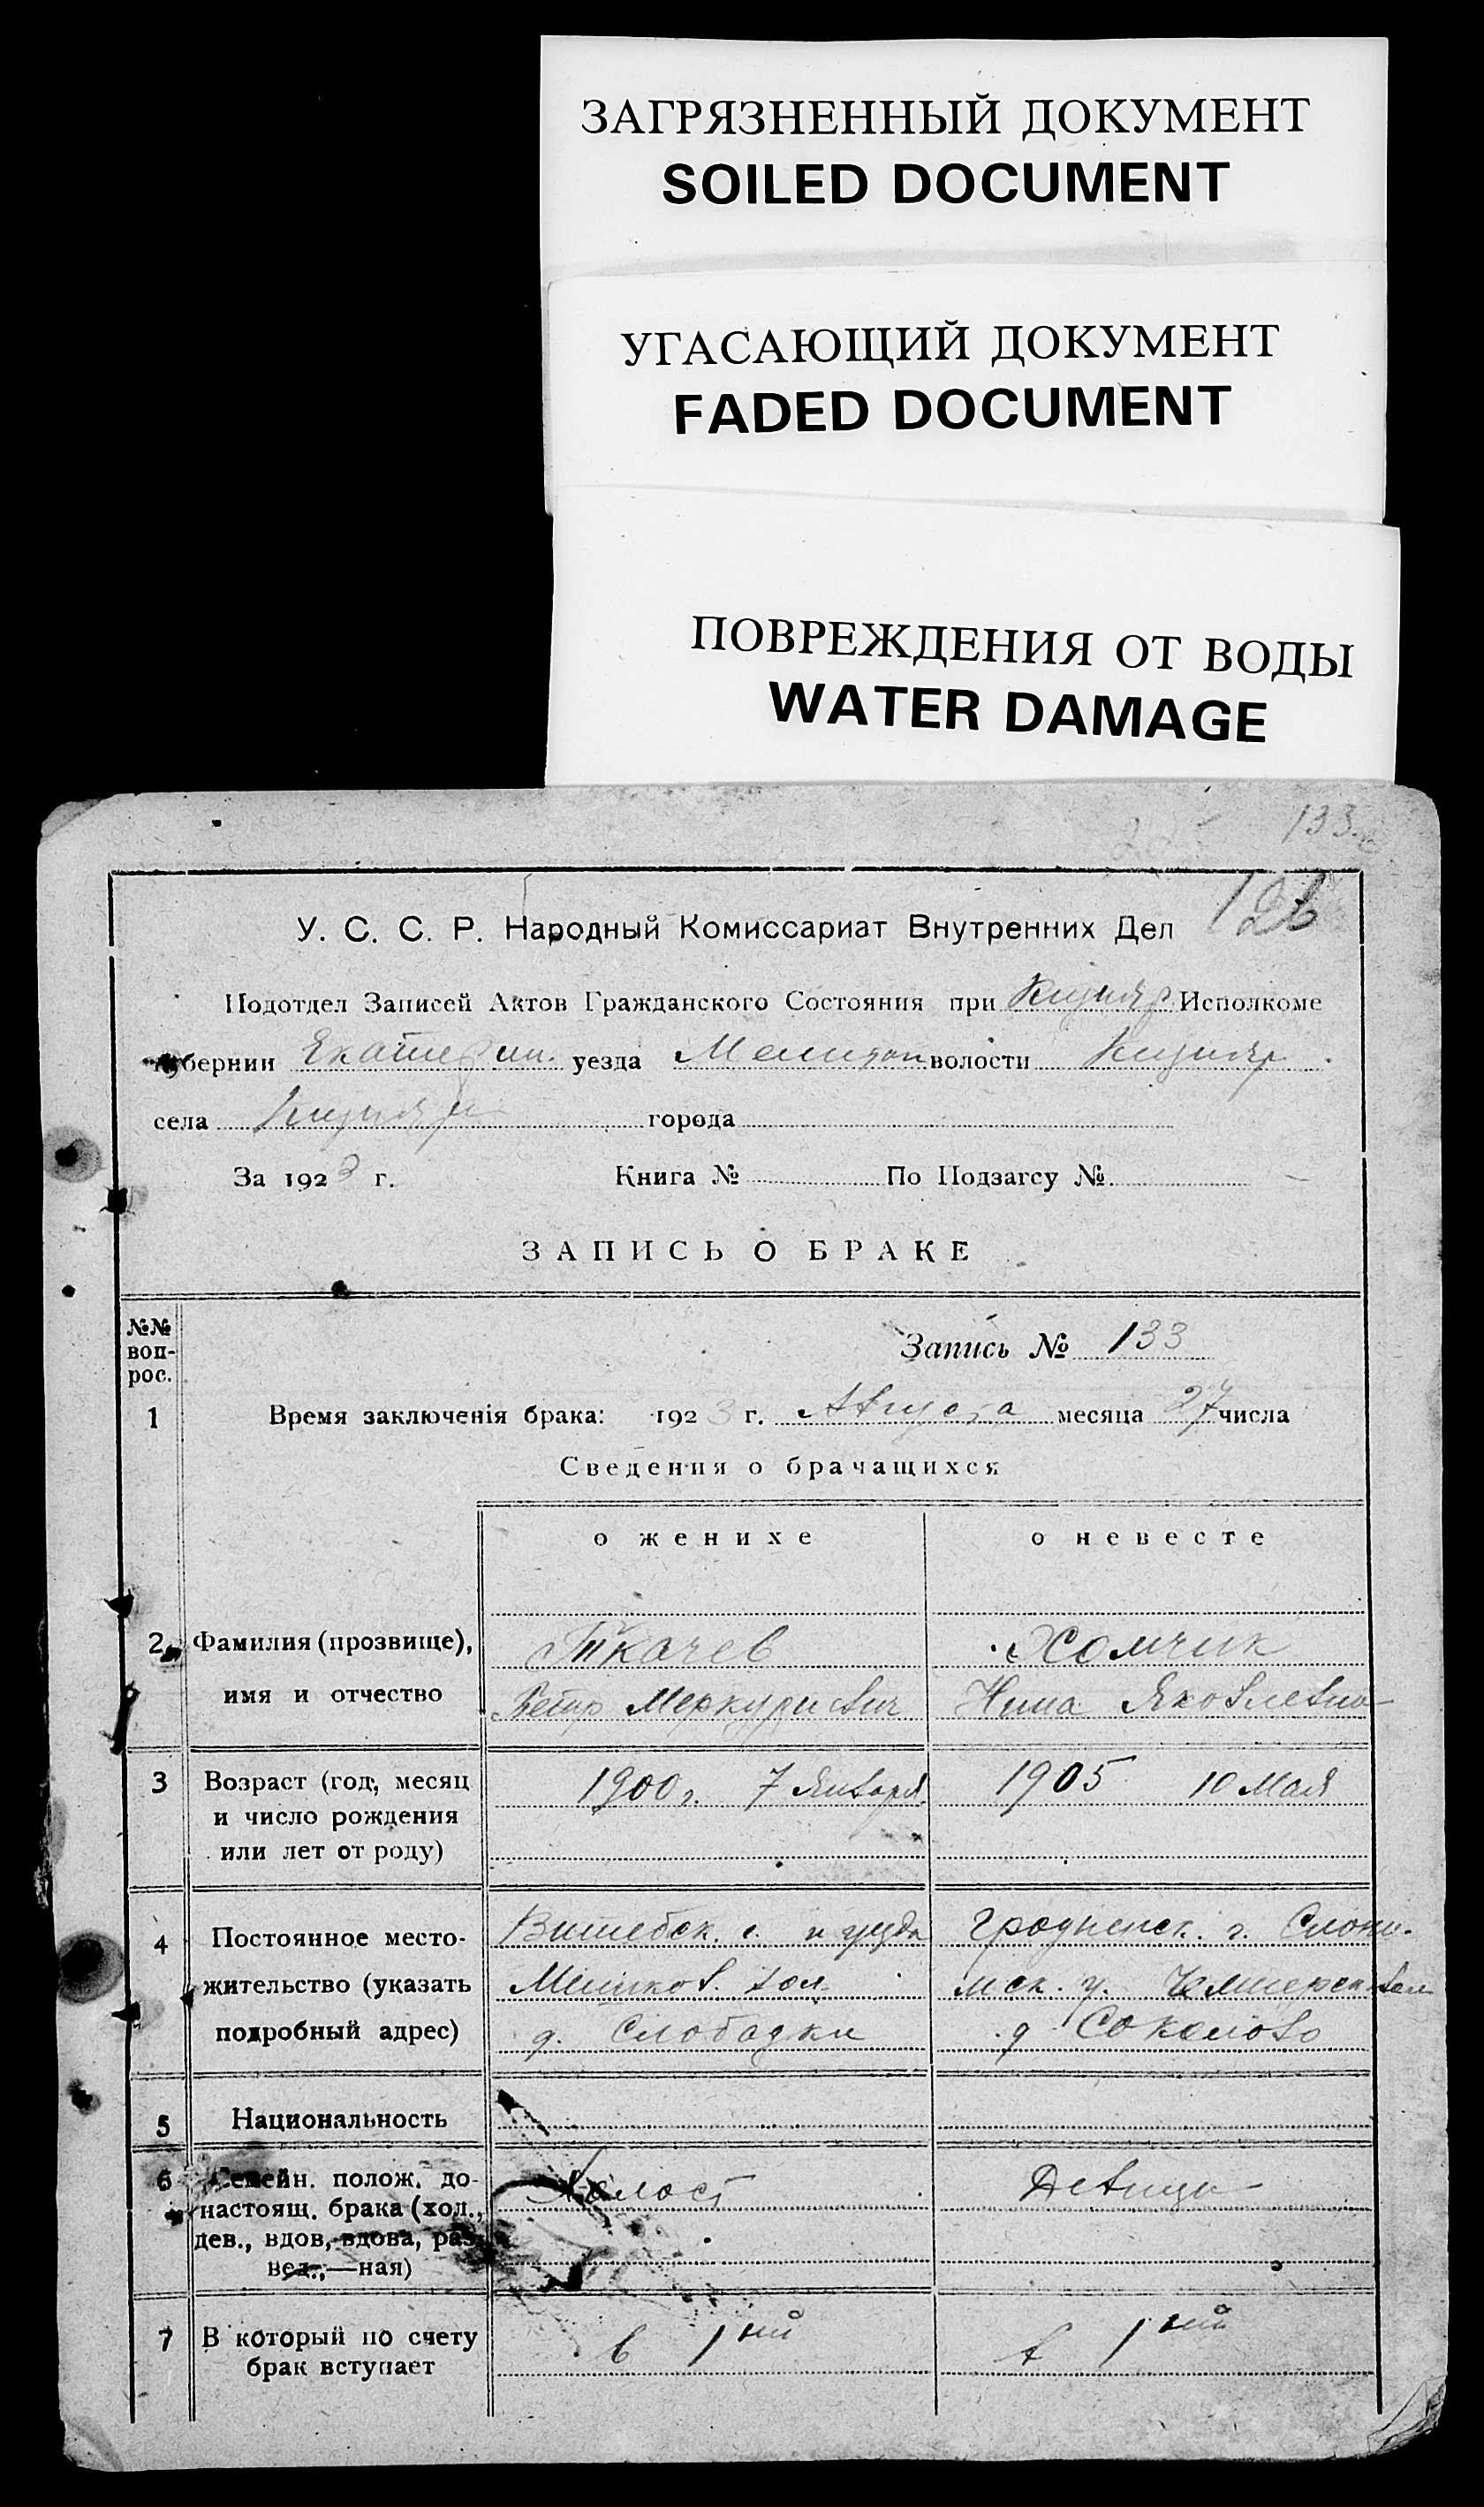 ЗАГРЯЗНЕННЫЙ ДОКУМЕНТ
SOILED DOCUMENT
УГАСАЮЩИЙ ДОКУМЕНТ
FADED DOCUMENT
ПОВРЕЖДЕНИЯ ОТ ВОДЫ
WATER DAMAGE
133.
126
У. С. С. Р. Народный Комиссариат Внутренних Дел
Подотдел Записей Актов Гражданского Состояния при Кизияр Исполкоме
губернии Екатерин. уезда Мелитоп волости Кизияр.
села Кизияр города
За 1923 г. Книга № По Подзагсу №
ЗАПИСЬ О БРАКЕ
№№ вопрос.
Запись № 133
1 Время заключенія брака: 1923 г. Августа месяца 27 числа
Сведения о брачащихся
о женихе о невесте
2 Фамилия (прозвище), Ткачев Хомчик
имя и отчество Петр Меркуриевич Нина Яковлевна
3 Возраст (год, месяц 1900 г. 7 Января 1905 10 Мая
и число рождения
или лет от роду)
4 Постоянное место- Витебск. г. и уезда Гродненск. г. Слони-
жительство (указать вол. мск. у. вол
подробный адрес) д. Слободки д Соколово
5 Национальность
6 Семейн. полож. до Холост Девица
настоящ. брака (хол.,
дев., вдов, вдова, раз-
вед.,—ная)
7 В который по счету в 1ый в 1ый
брак вступает